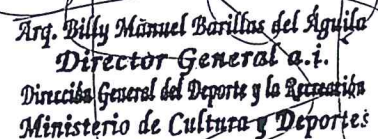 Arq. Billy Manuel Barillas del Águila
Director General a.i.
Dirección General del Deporte y la Recreación
Ministerio de Cultura y Deportes